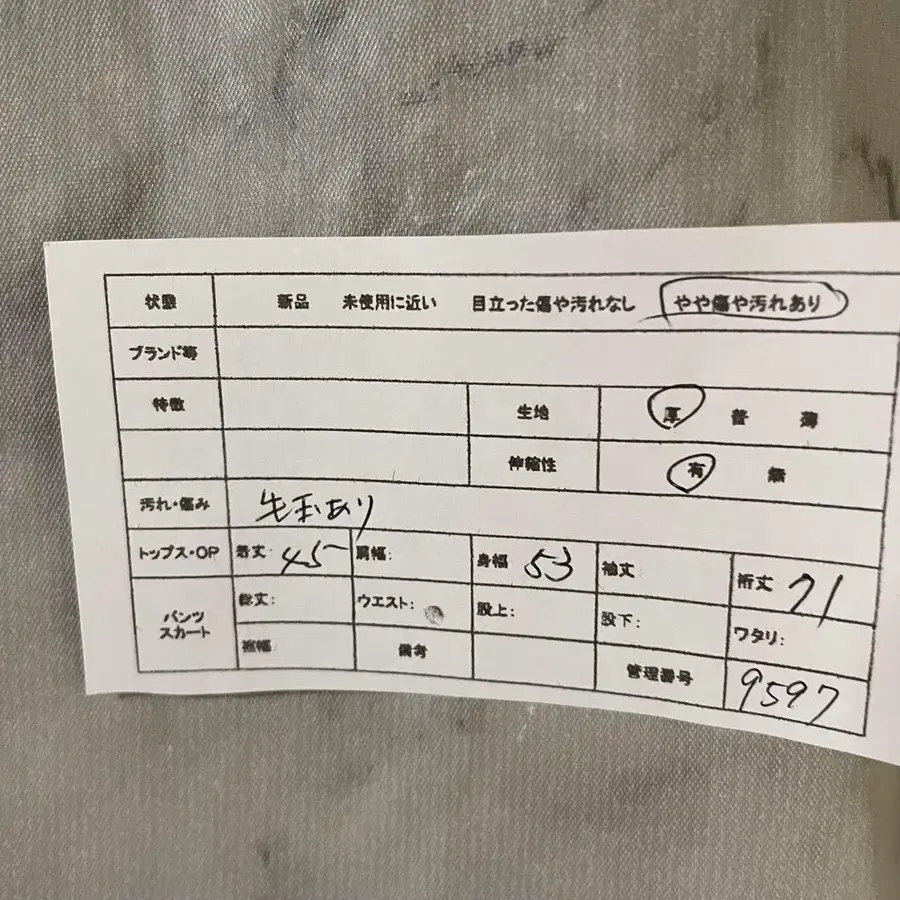 状態 新品 未使用に近い 目立った傷や汚れなし やや傷や汚れあり
ブランド等
特徴 生地 厚 普 薄
伸縮性 有 無
汚れ・傷み 毛玉あり
トップス・OP 着丈: 45 肩幅: 身幅 53 袖丈 裄丈 71
パンツ スカート 総丈: ウエスト: 股上: 股下: ワタリ:
裾幅 備考 管理番号 9597